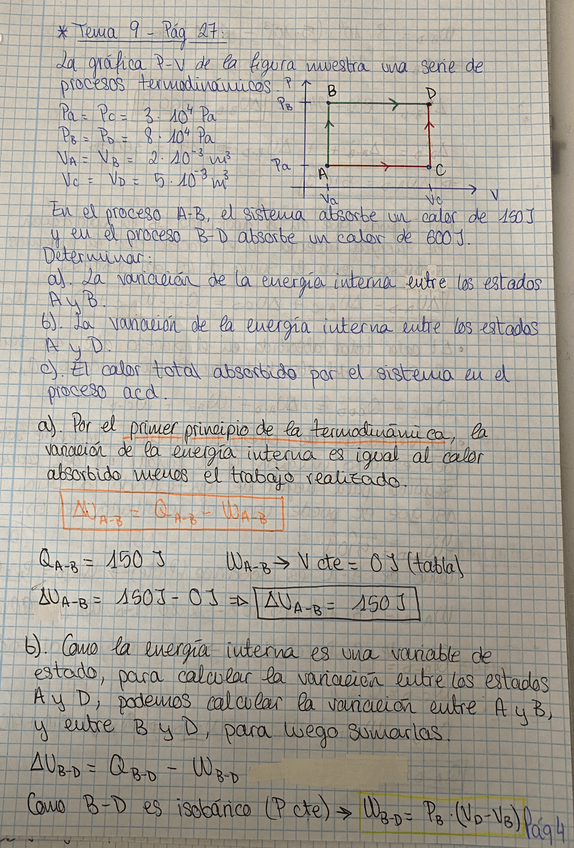 * Tema 9 - Pág 27:
La gráfica P-V de la figura muestra una serie de
procesos termodinámicos.
P
PB
B
D
Pa
A
C
Va
Vc
V
Pa = Pc = 3 · 10⁴ Pa
PB = PD = 8 · 10⁴ Pa
VA = VB = 2 · 10⁻³ m³
Vc = VD = 5 · 10⁻³ m³
En el proceso A-B, el sistema absorbe un calor de 150J
y en el proceso B-D absorbe un calor de 600J.
Determinar:
a). La variación de la energía interna entre los estados
A y B.
b). La variación de la energía interna entre los estados
A y D.
c). El calor total absorbido por el sistema en el
proceso acd.
a). Por el primer principio de la termodinámica, la
variación de la energía interna es igual al calor
absorbido menos el trabajo realizado.
ΔUA-B = QA-B - WA-B
QA-B = 150 J WA-B → V cte = 0 J (tabla)
ΔUA-B = 150J - 0J ⇒ ΔUA-B = 150J
b). Como la energía interna es una variable de
estado, para calcular la variación entre los estados
A y D, podemos calcular la variación entre A y B,
y entre B y D, para luego sumarlas.
ΔUB-D = QB-D - WB-D
Como B-D es isobárico (P cte) → WB-D = PB · (VD - VB)
Pág 4